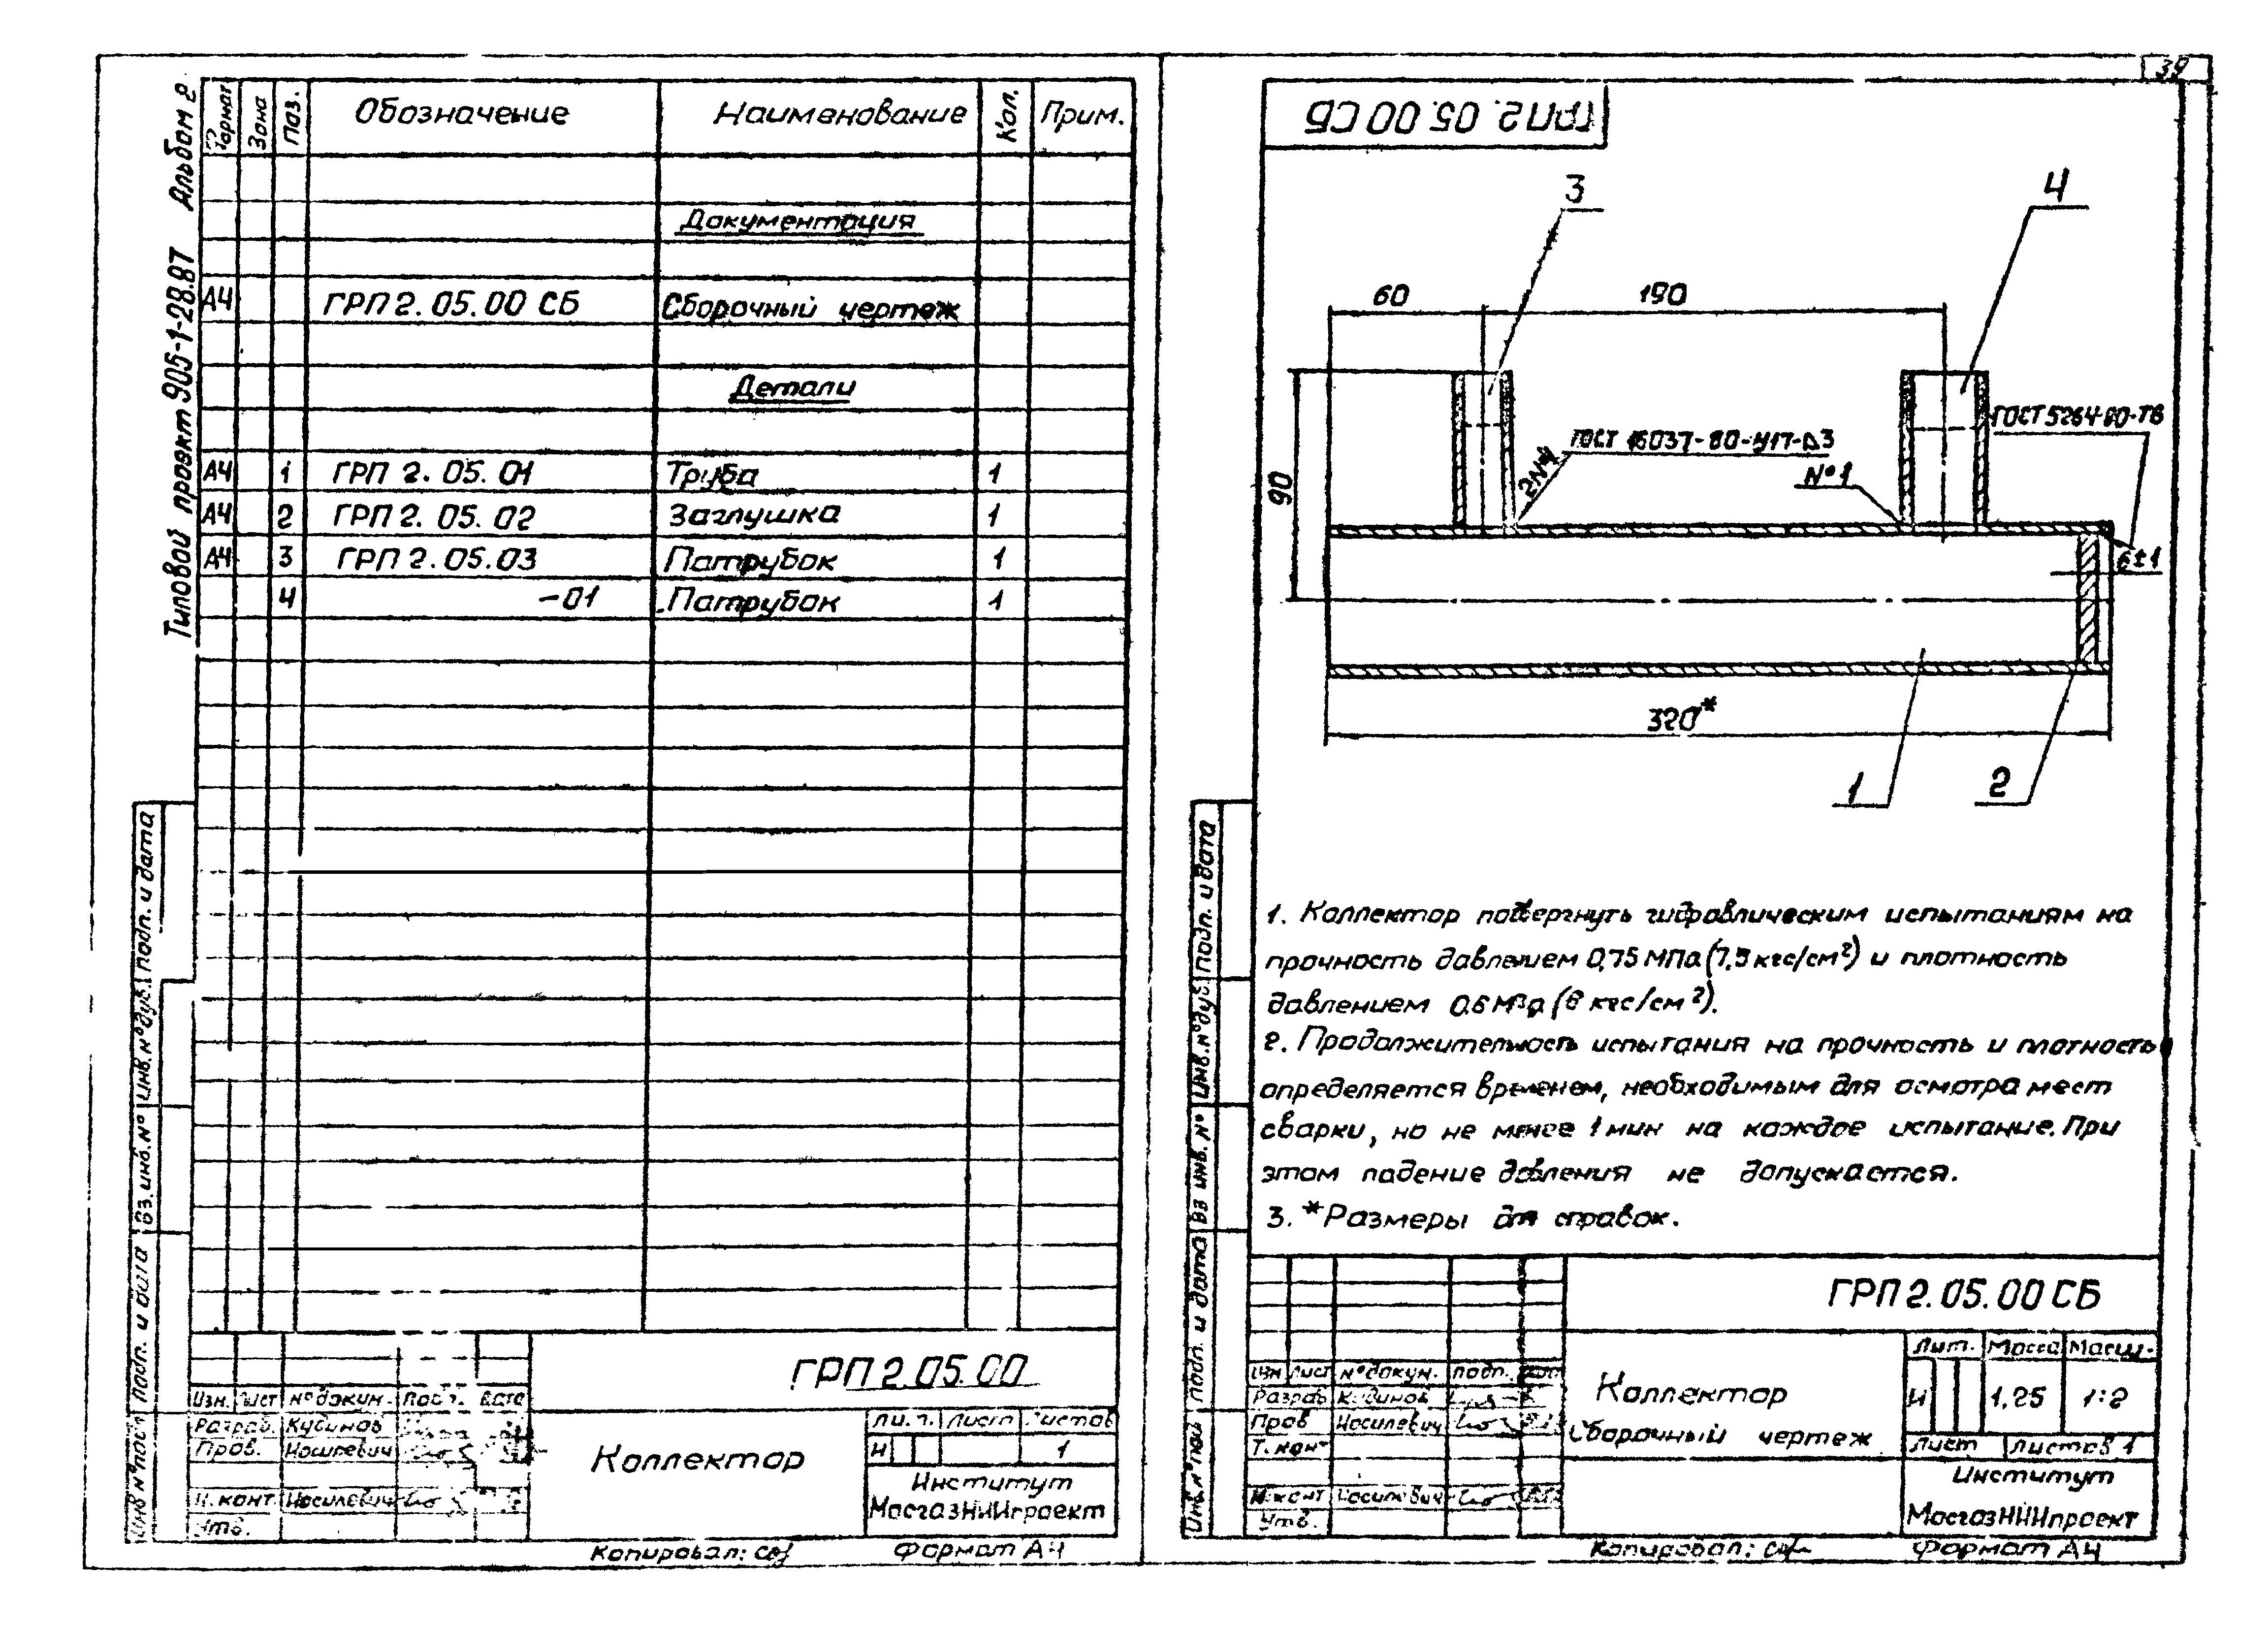 Типовой проект 905-1-28.87 Альбом 2
Формат Зона Поз. Обозначение Наименование Кол. Прим.
Документация
А4 ГРП 2. 05. 00 СБ Сборочный чертеж
Детали
А4 1 ГРП 2. 05. 01 Труба 1
А4 2 ГРП 2. 05. 02 Заглушка 1
А4 3 ГРП 2. 05. 03 Патрубок 1
4 -01 Патрубок 1
Инв. № подл. Подп. и дата Вз. инв. № Инв. № дуб. Подп. и дата
ГРП 2. 05. 00
Изм. Лист № докум. Подп. Дата
Разраб. Кудинов
Пров. Носилевич
Н. конт Носилевич
Утв.
Коллектор
Лит. Лист Листов
И 1
Институт
МосгазНИИпроект
Копировал: Формат А4
39
ГРП 2. 05. 00 СБ
3
4
60
190
90
ГОСТ 16037-80-У17-
№1
ГОСТ 5264-80-Т6
6±1
320*
1
2
1. Коллектор подвергнуть гидравлическим испытаниям на
прочность давлением 0,75 МПа (7,5 кгс/см²) и плотность
давлением 0.6 МПа (6 кгс/см²).
2. Продолжительность испытания на прочность и плотность
определяется временем, необходимым для осмотра мест
сварки, но не менее 1 мин на каждое испытание. При
этом падение давления не допускается.
3. *Размеры для справок.
Инв. № подл Подп. и дата Вз инв. № Инв. № дуб. Подп. и дата
ГРП 2. 05. 00 СБ
Изм Лист № докум. Подп. Дата
Разраб Кудинов
Пров Носилевич
Т. конт
Н. конт Носилевич
Утв.
Коллектор
Сборочный чертеж
Лит. Масса Масш.
И 1,25 1:2
Лист Листов 1
Институт
МосгазНИИпроект
Копировал: Формат А4